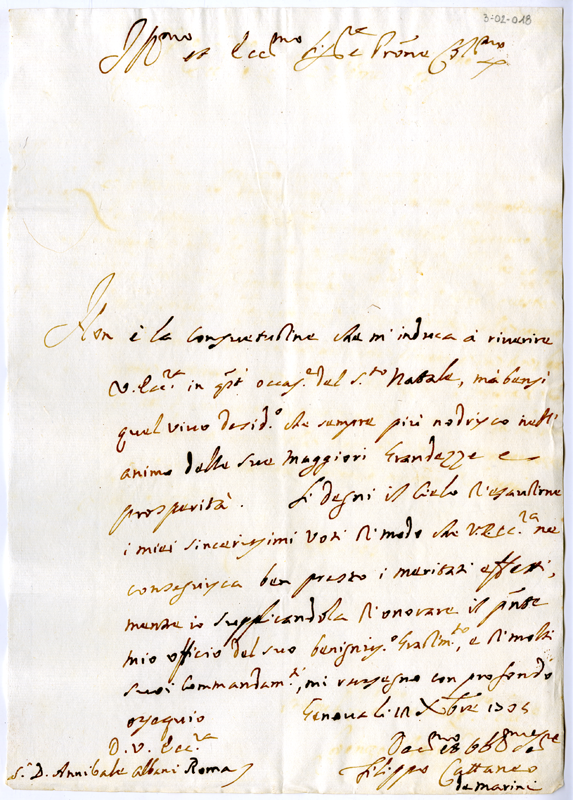 3-02-018
Ill.mo et Ecc.mo Sig.re e Prõne Col.mo
Non è la consuetudine che m'induca à riverire
V. Ecc.za in q̃sta occas.e del S.to Natale, mà bensi
quel vivo desid.o che sempre più nodrisco nell'
animo delle sue maggiori Grandezze e
prosperità. Si degni il Cielo d'esaudirne
i miei sincerissimi voti di modo che V. Ecc.za ne
conseguisca ben presto i meritati effetti,
mentre io supplicandola d'onorare il p̃nte
mio officio del suo benigniss.o Gradim.to, e di molti
suoi Commandam.ti, mi rassegno con profondo
ossequio Genova li Xbre
D. V. Ecc.za
S.r D. Annibale Albani Roma
Filippo Cattaneo
de Marini